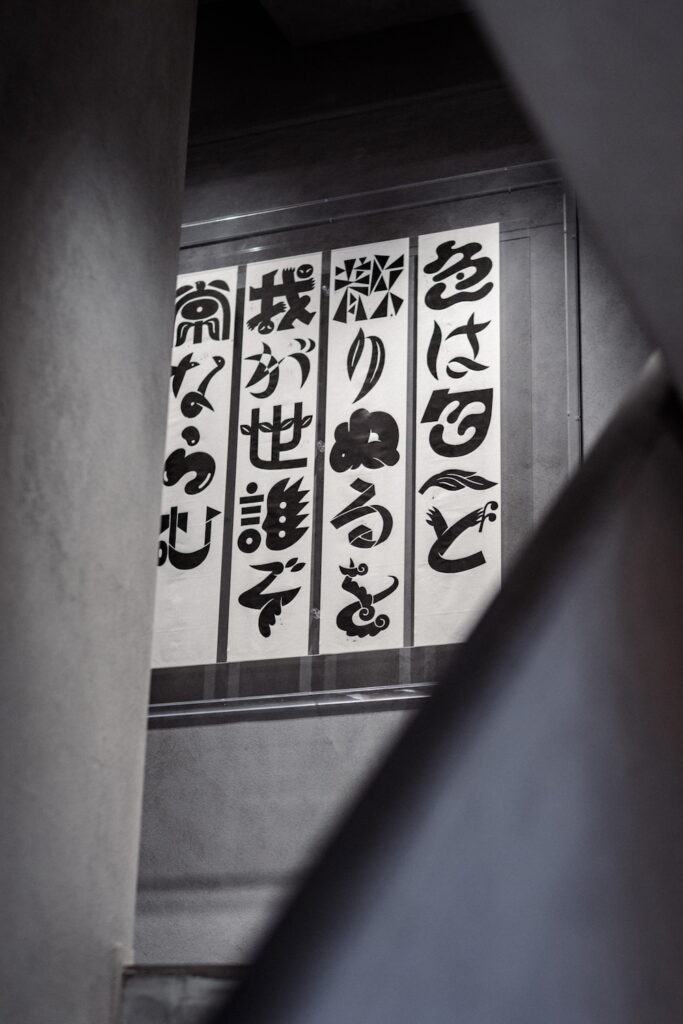 色は匂へど
散りぬるを
我が世誰ぞ
常ならむ